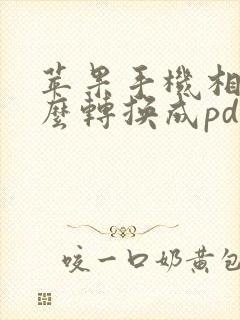 苹果手機相
麽轉換成pd
咬一口奶黄包